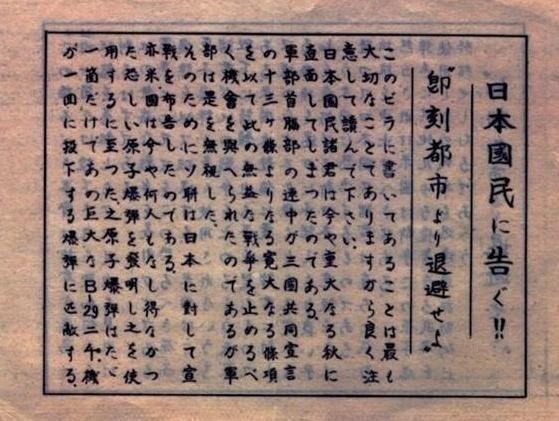 日本國民に告ぐ!!
"即刻都市より退避せよ"
このビラに書いてあることは最も
大切なことでありますから良く注
意して讀んで下さい。
日本國民諸君は今や重大なる秋に
直面してしまったのである。
軍部首腦部の連中が三國共同宣言
の十三ヶ條よりなる寬大なる條項
を以て此の無益な戰爭を止めるべ
く機會を與へられたのであるが軍
部は是を無視した。
そのためにソ聯は日本に對して宣
戰を布告したのである。
亦米國は今や何人もなし得なかつ
た恐しい原子爆彈を發明し之を使
用するに至つた。之原子爆彈はたゞ
一箇だけであの巨大なB-29二千機
が一回に投下する爆彈に匹敵する。